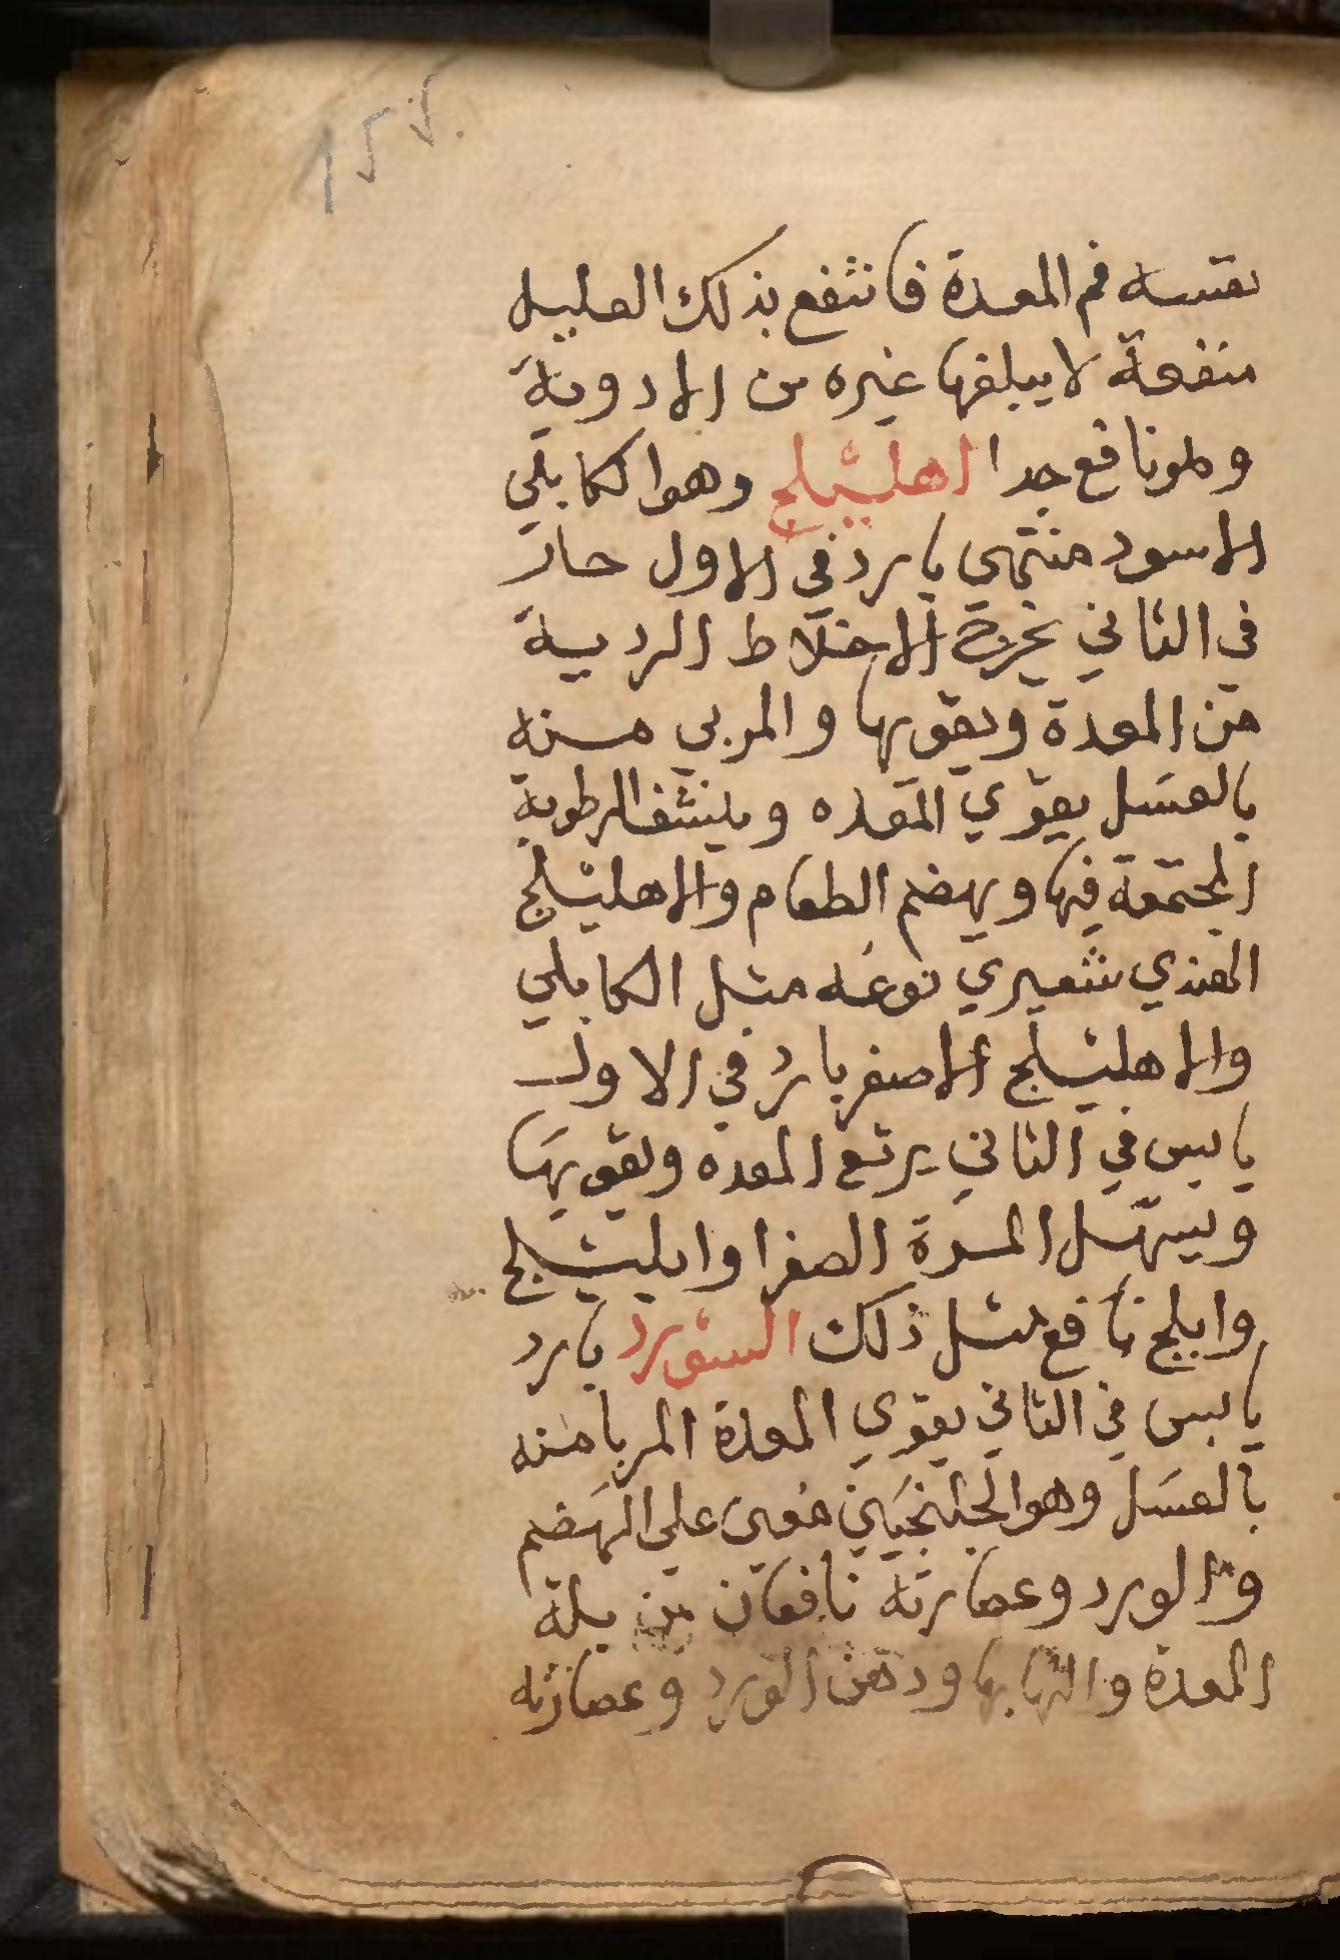 ١٢٢
نفسه فم المعدة فانتفع بذلك العليل
منفعة لا يبلغها غيره من الادوية
وهو نافع جدا اهليلج وهو الكابلي
الاسود منتهي بارد في الاول حار
في الثاني يخرج الاخلاط الردية
من المعدة ويقويها والمربي منه
بالعسل يقوي المعده وينشف الرطوبة
المجتمعة فيها ويهضم الطعام والاهليلج
الهندي شعيري نوعه مثل الكابلي
والاهليلج الاصفر بارد في الاول
يابس في الثاني المعده ويقويها
ويسهل المرة الصفرا وابليلج
واملج نافع مثل ذلك الورد بارد
يابس في الثاني يقوي المعدة المربا منه
بالعسل وهو الجلنجبين مقوى على الهضم
الورد وعصارته نافعان من بلة
المعدة والتهابها ودهن الورد وعصارته